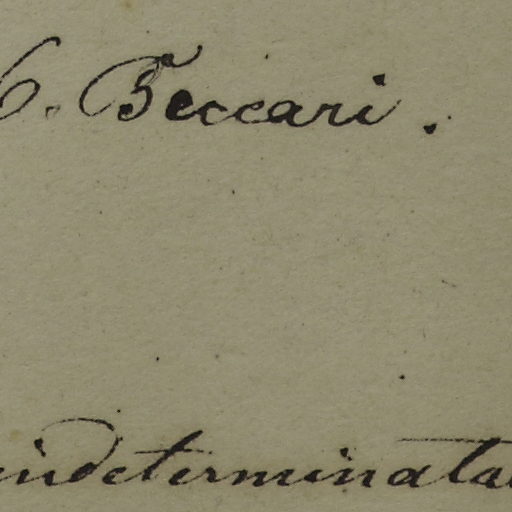 O. Beccari.
indeterminata